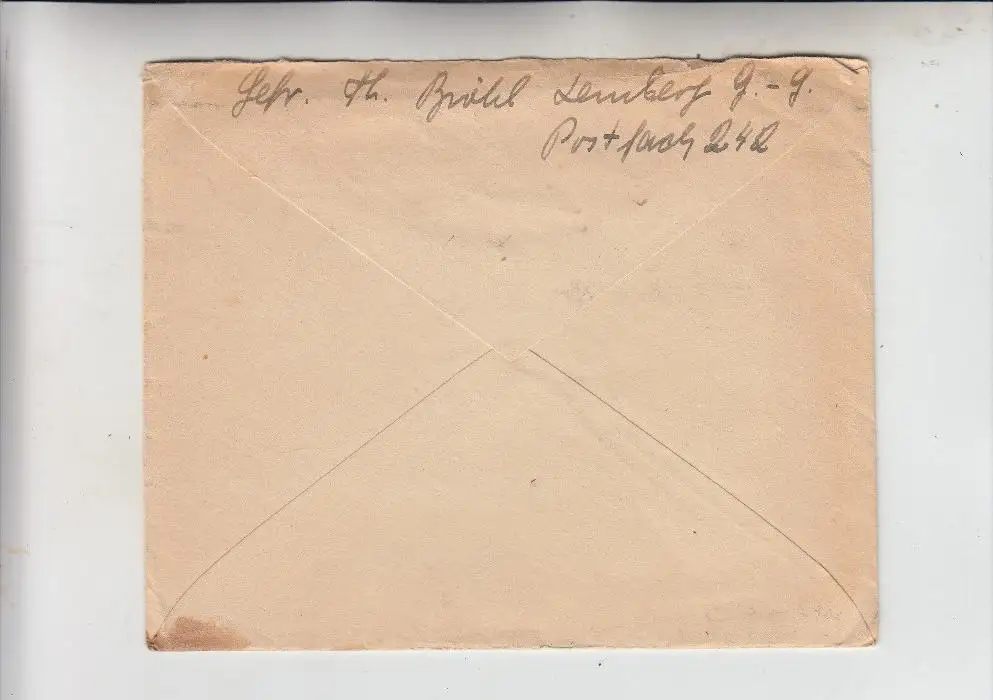 Gefr. Th. Bröhl Lemberg G.-G.
Postfach 242